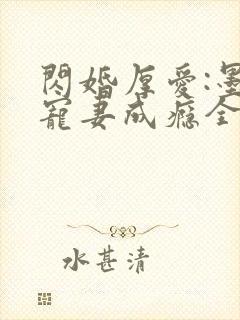 閃婚厚愛:墨
寵妻成瘾全
水甚清